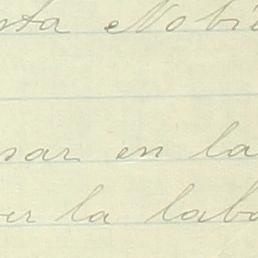 sta Nobie
sar en la
er la labo